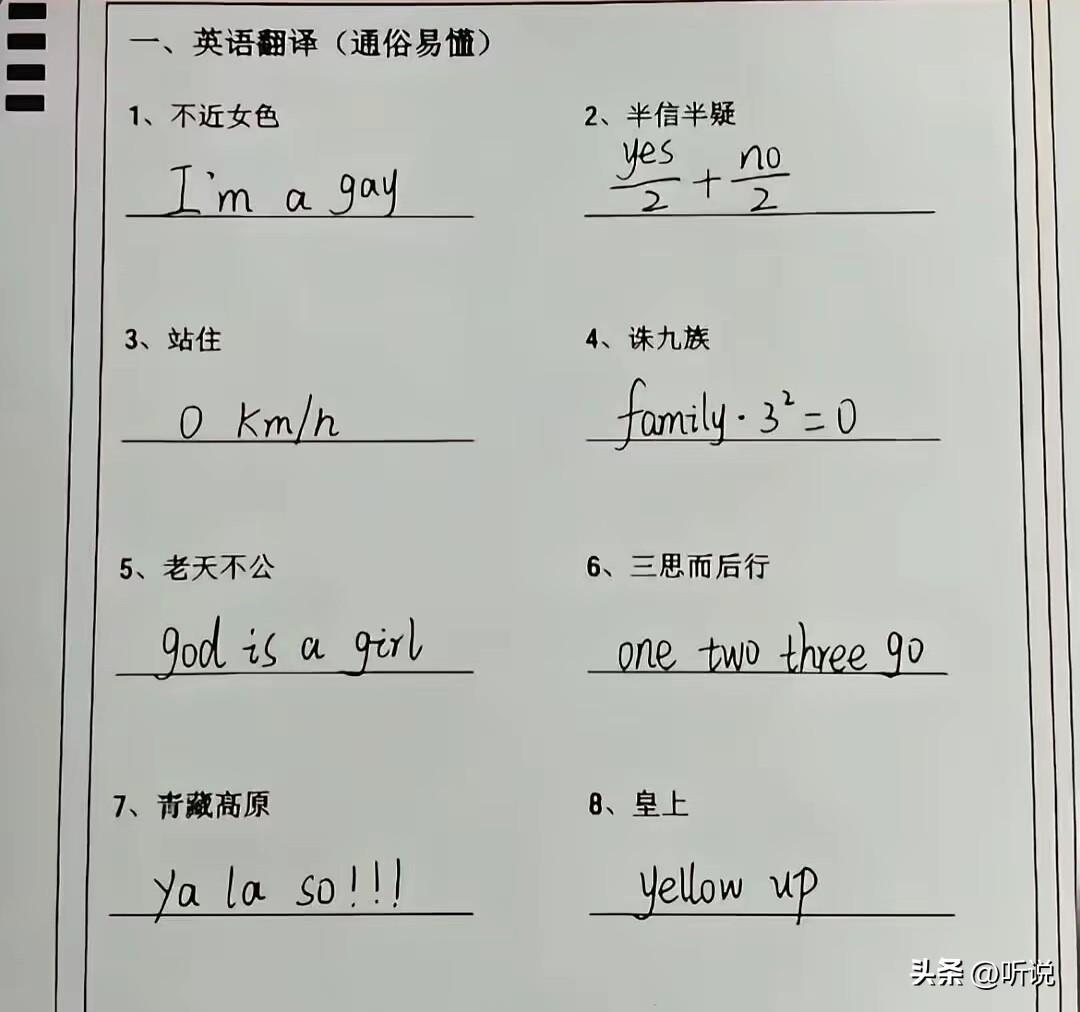 一、英语翻译（通俗易懂）
1、不近女色
I'm a gay
2、半信半疑
yes/2 + no/2
3、站住
0 km/h
4、诛九族
family · 3² = 0
5、老天不公
god is a girl
6、三思而后行
one two three go
7、青藏高原
ya la so!!!
8、皇上
yellow up
头条 @听说